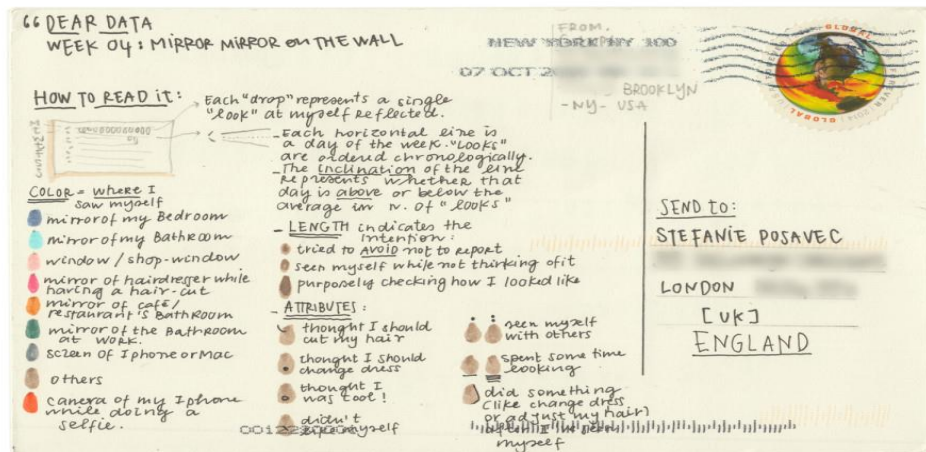 “ DEAR DATA
WEEK 04: MIRROR MIRROR on THE WALL
FROM,
BROOKLYN
-NY- USA
NEW YORK NY 100
07 OCT 2
GLOBAL
FOREVER
GLOBAL
HOW TO READ it:
Each "drop" represents a single
"look" at myself reflected.
- Each horizontal line is
a day of the week. "Looks"
are ordered chronologically.
- The inclination of the line
represents whether that
day is above or below the
average in n. of "looks"
COLOR = where I
saw myself
mirror of my Bedroom
mirror of my Bathroom
window / shop-window
mirror of hairdresser while
having a hair-cut
mirror of café/
restaurant's Bathroom
mirror of the Bathroom
at work.
screen of Iphone or Mac
others
camera of my Iphone
while doing a
selfie.
- LENGTH indicates the
intention:
tried to AVOID not to report
seen myself while not thinking of it
purposely checking how I looked like
- ATTRIBUTES:
thought I should
cut my hair
thought I should
change dress
thought I
was cool!
didn't
myself
seen myself
with others
spent some time
looking
did something
(like change dress
or adjust my hair)
myself
SEND TO:
STEFANIE POSAVEC
LONDON
[UK]
ENGLAND